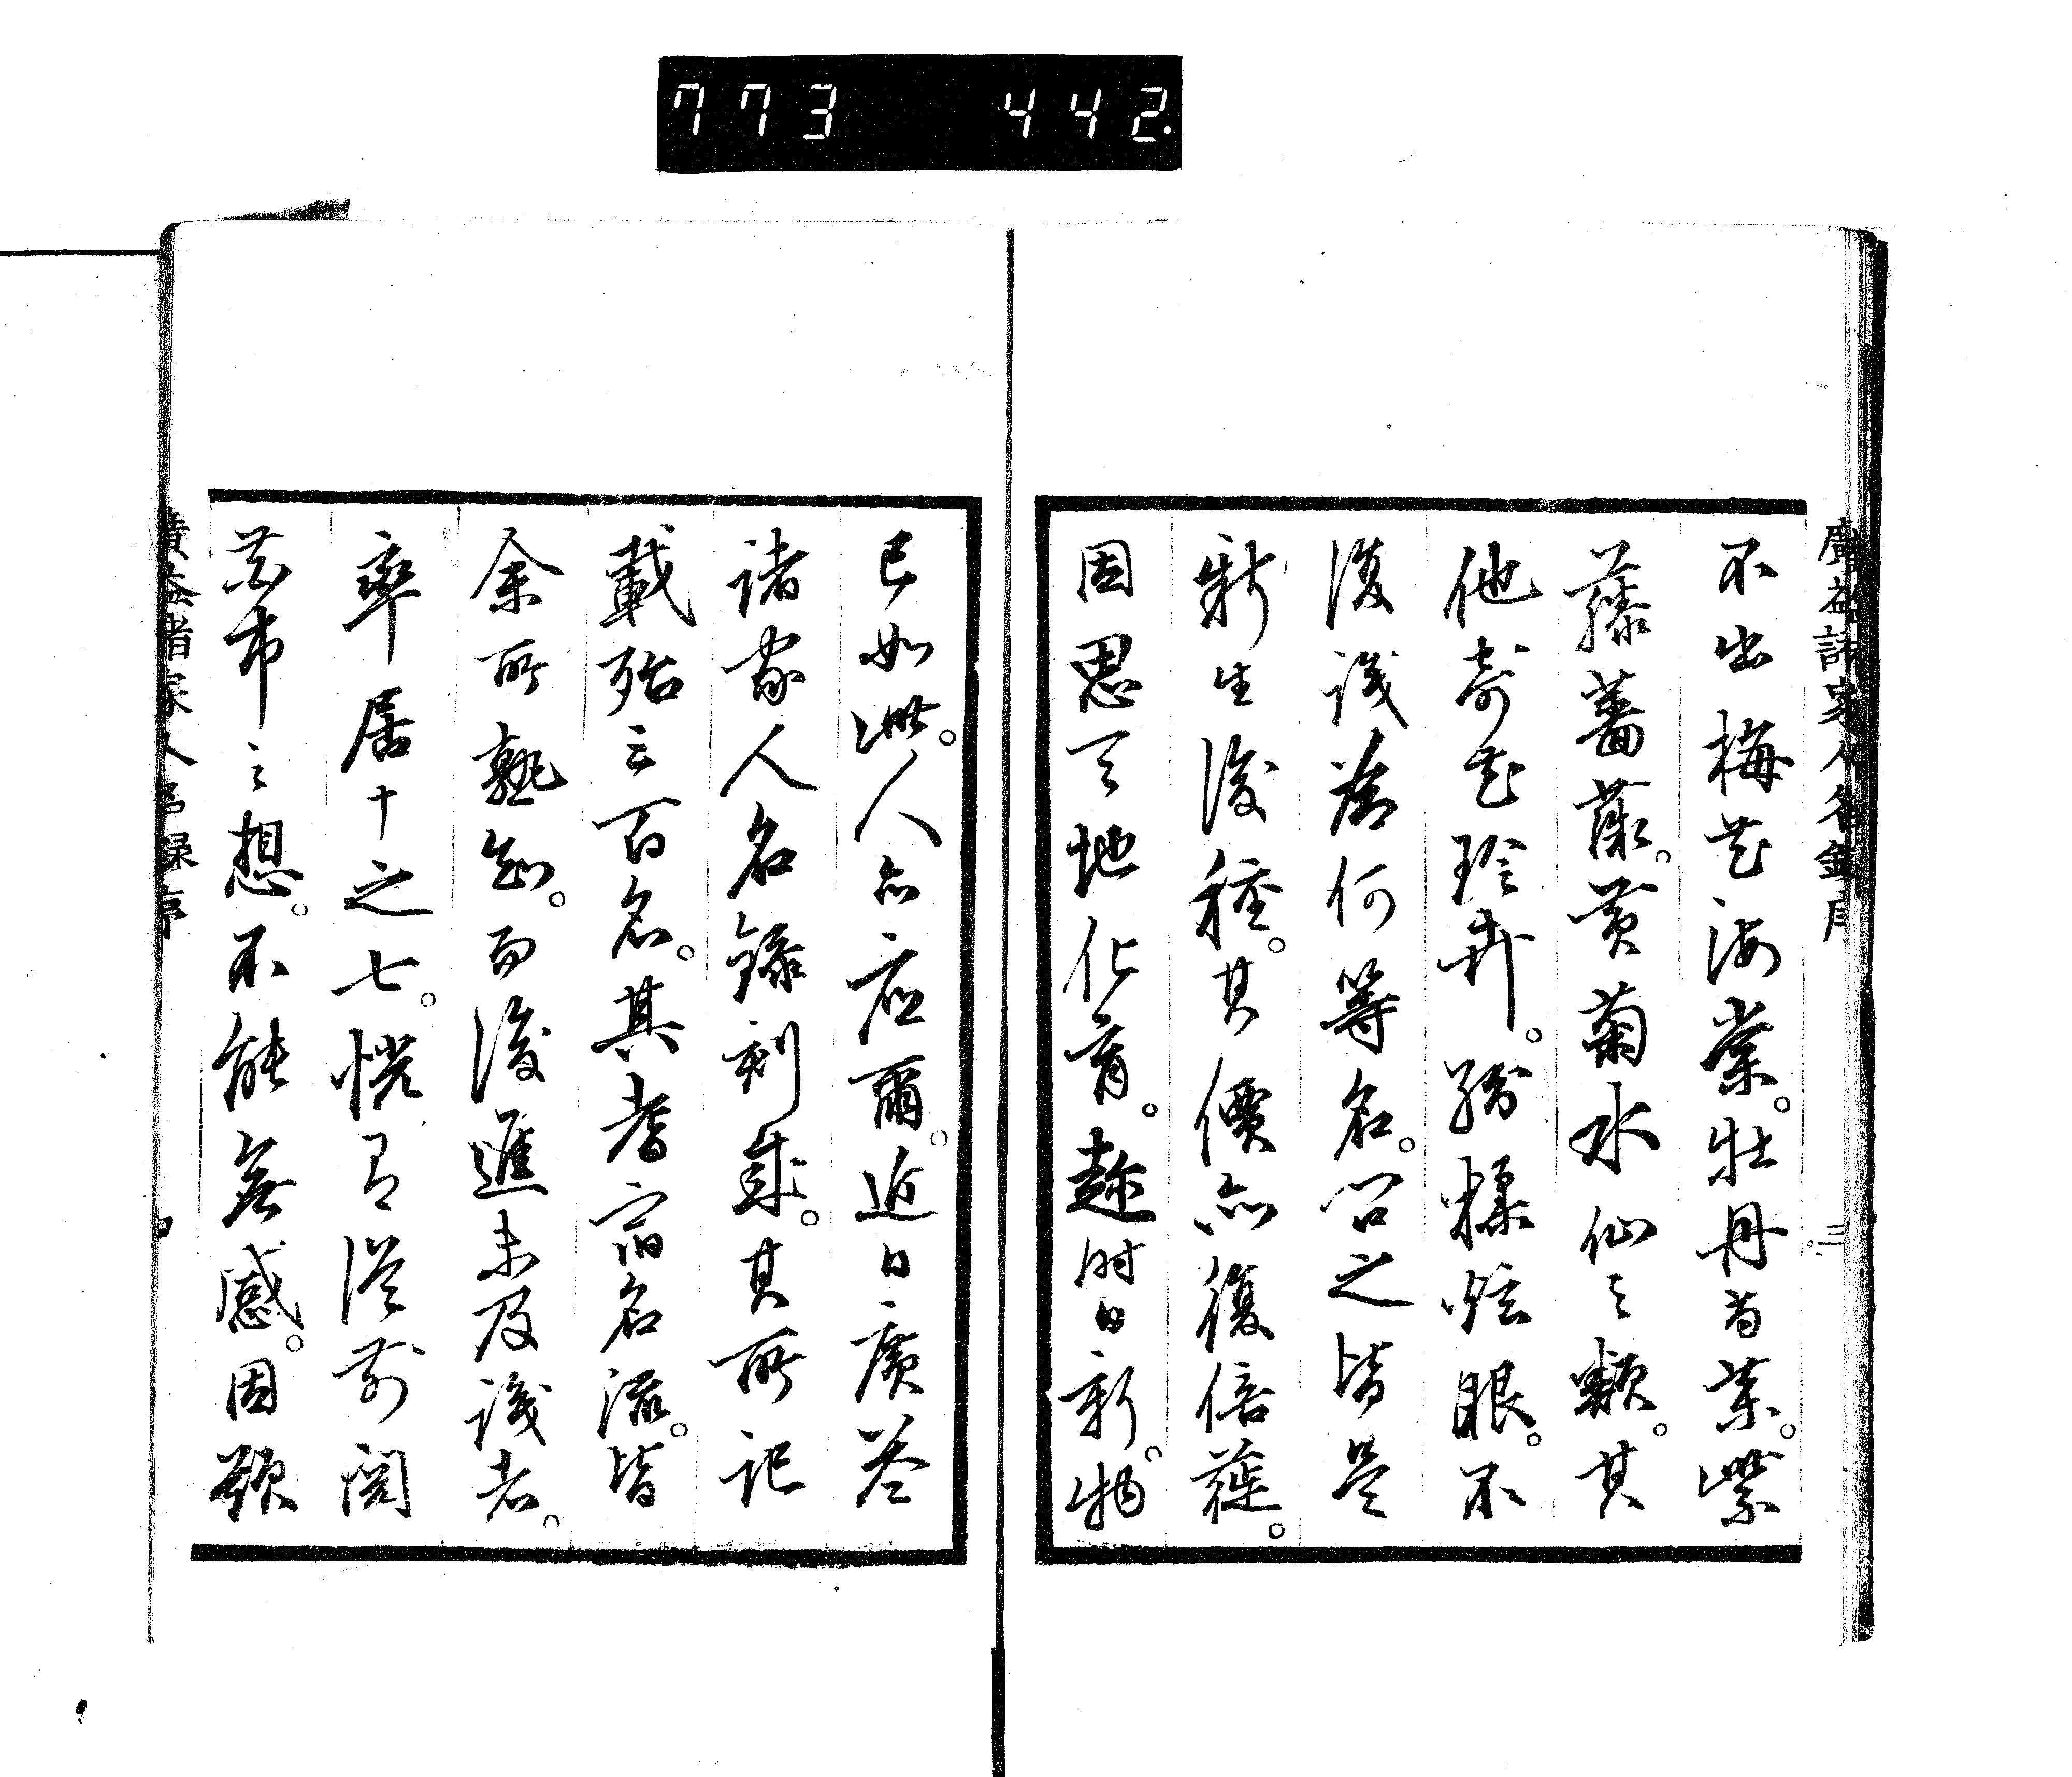 773 442.
廣益諸家人名錄序
三
不出梅花海棠。牡丹芍藥。紫
藤薔薇。黃菊水仙之類。其
他奇花珍卉。紛糅炫眼。不
復識為何等名。問之皆是
新生後種。其價亦復倍蓰。
因思天地化育。趂時日新。物
已如此。人亦應爾。近日廣益
諸家人名錄刻成。其所記
載殆三百名。其耆宿名流。皆
余所熟知。而後進未及識者。
率居十之七。恍有從前閱
花市之想。不能無感。因題
廣益諸家人名錄序